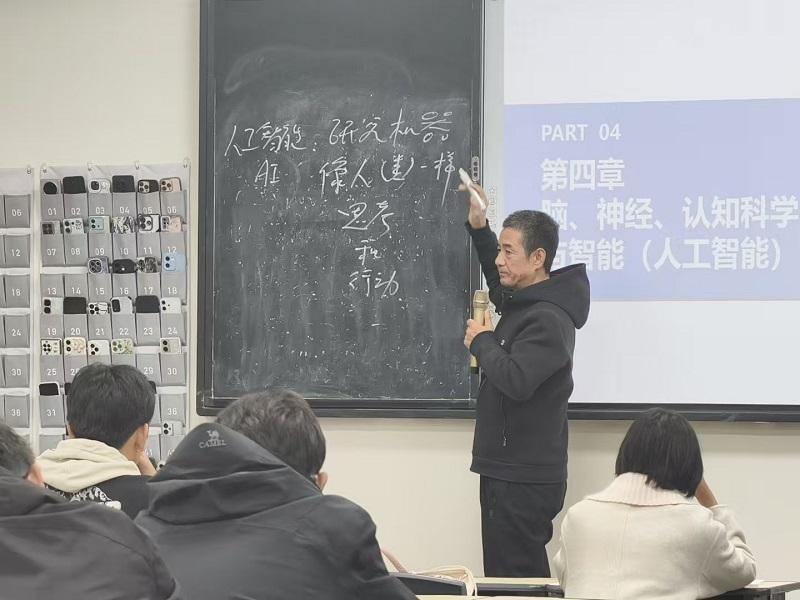 人工智能：研究机器
AI 像人(类)一样
思考
和
行动
PART 04
第四章
脑、神经、认知科学
与智能（人工智能）
06
12
18
24
30
36
01 02 03 04 05 06
07 08 09 10 11 12
18
19 20 21 22 23 24
25 29 30
31 36
CAMEL